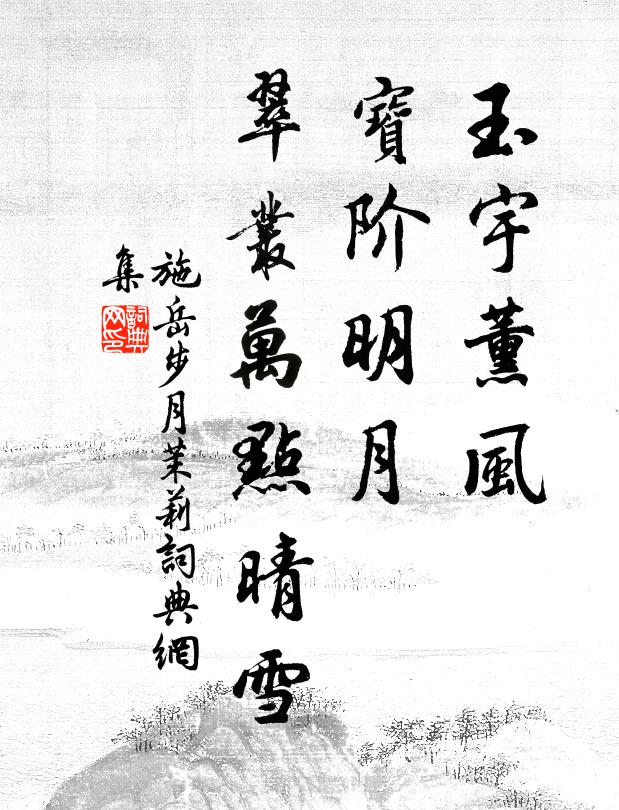 玉宇薰風
寶阶明月
翠叢萬點晴雪
施岳步月茉莉詞典網
集
詞典
网印